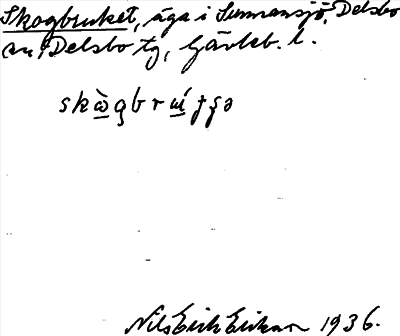 Skogbruket, äga i Sunnansjö, Delsbo
sn, Delsbo tg, Gävleb. l.
Nils Erik Eriksson 1936.